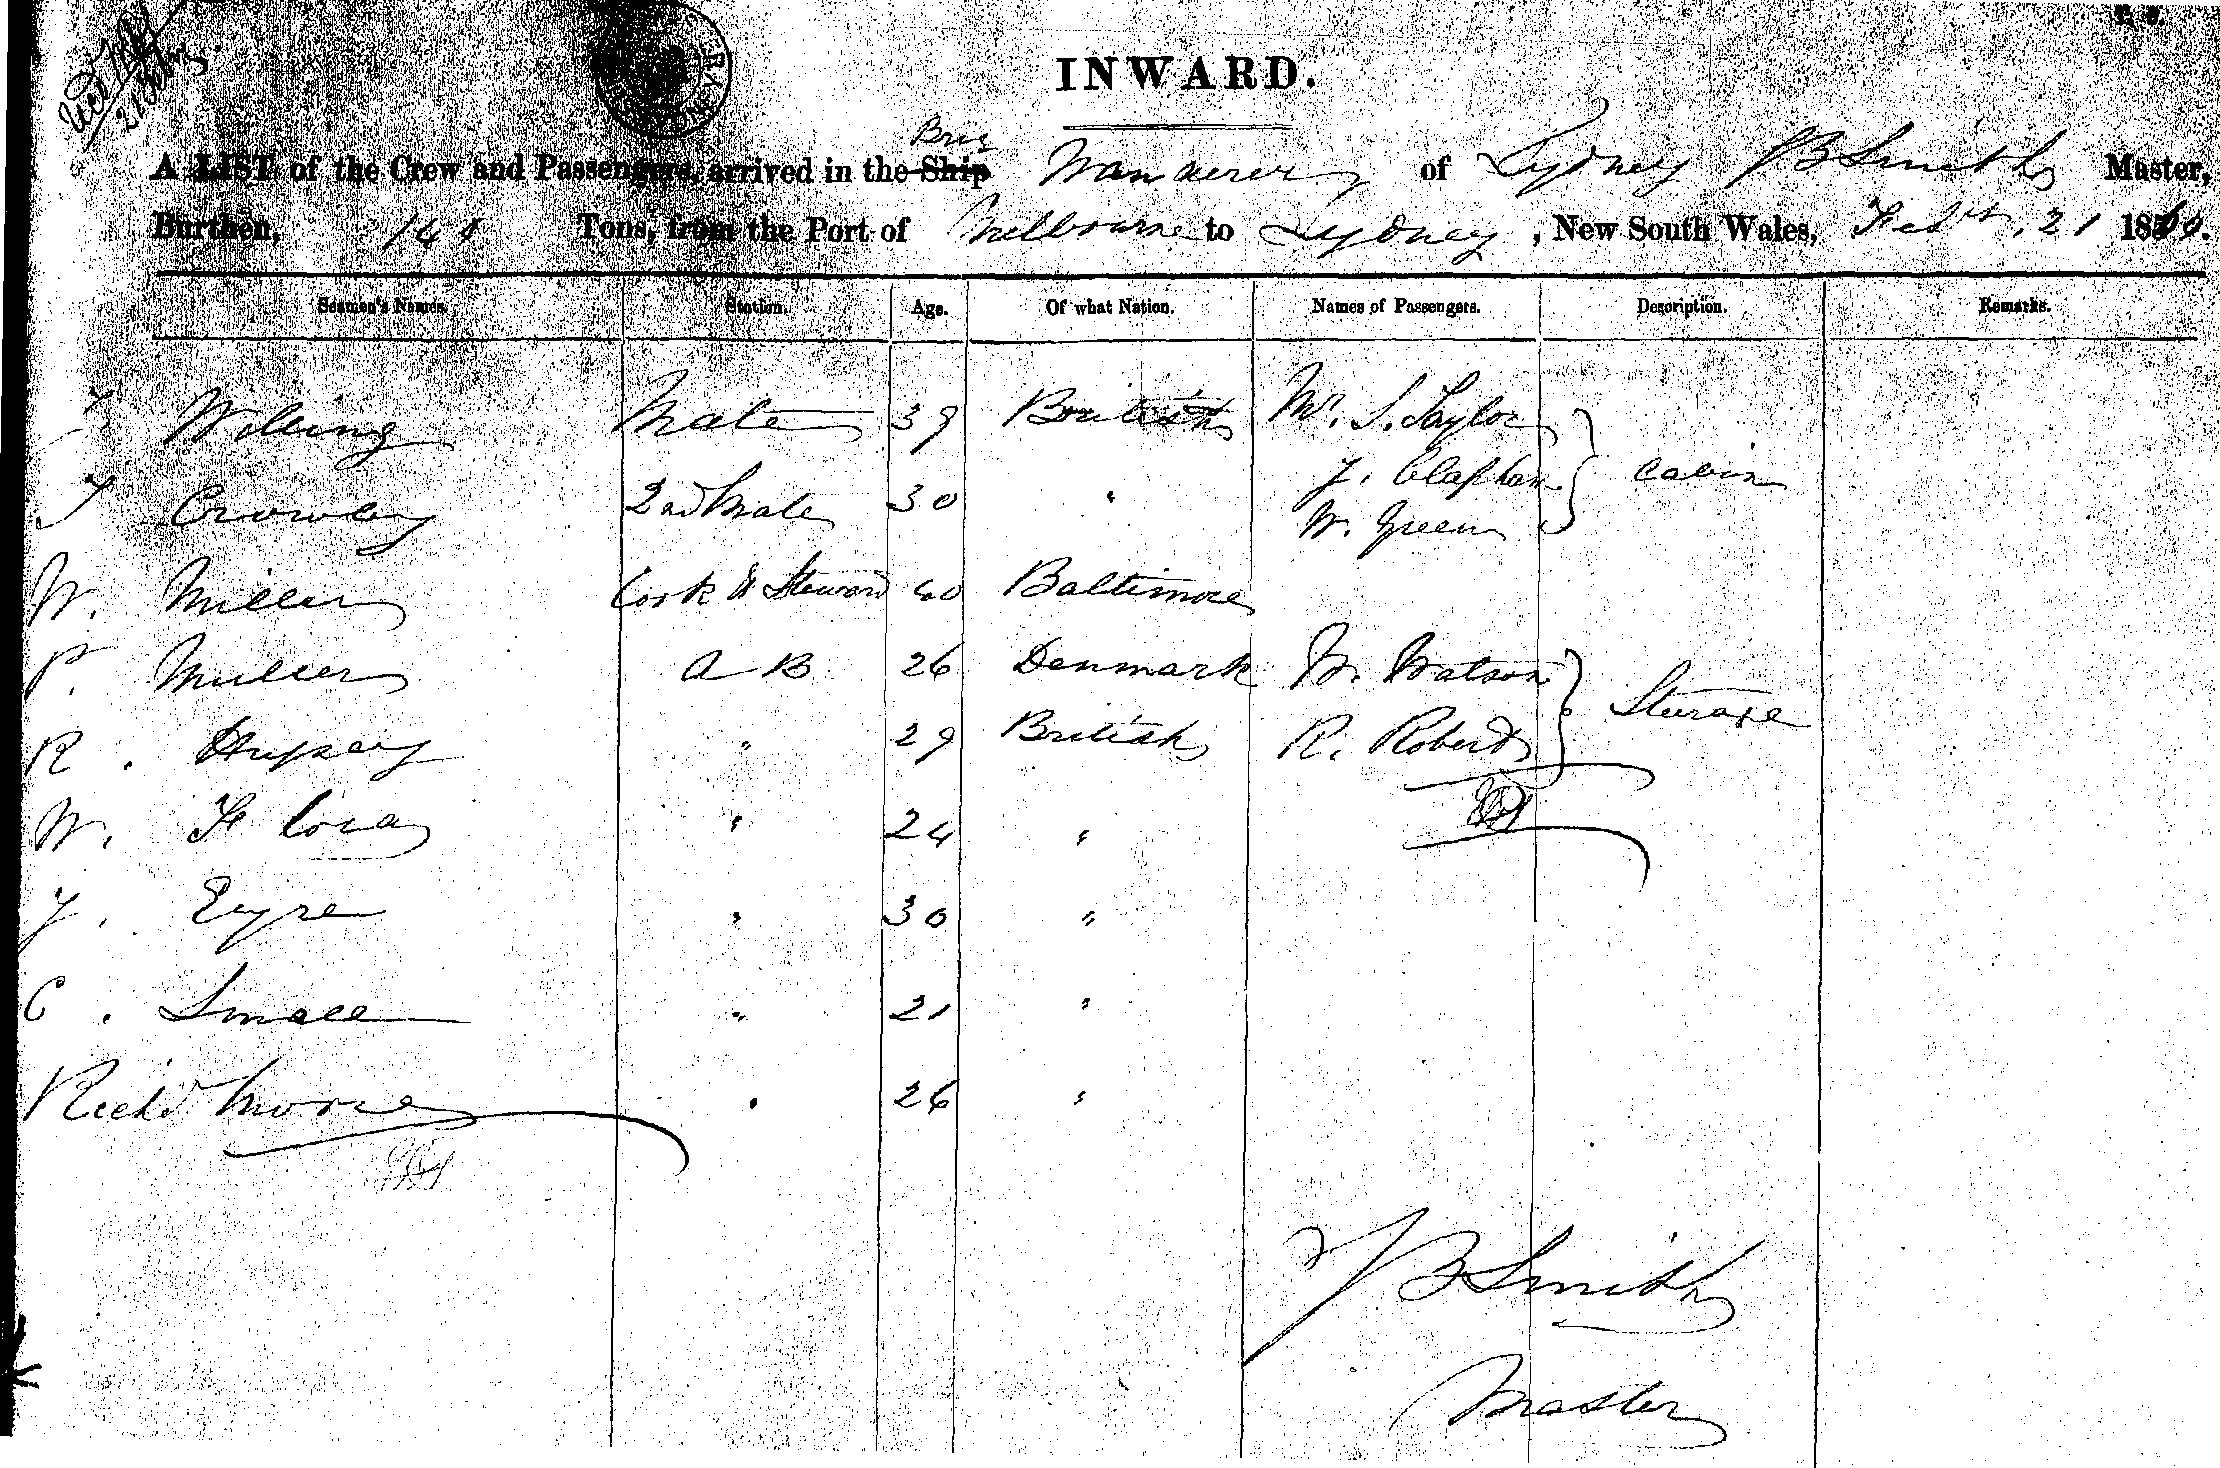 INWARD.
Brig
A LIST of the Crew and Passengers, arrived in the Ship Wanderer of Sydney JB Smith Master,
Burthen, 140 Tons, from the Port of Melbourne to Sydney, New South Wales, Feby. 21 1860.
Seamen's Names. Station. Age. Of what Nation. Names of Passengers. Description. Remarks.
Mate 39 British Mr. S. Taylor
J. Clapham Cabin
T Crowley 2nd Mate 30 "
W. Green
W. Miller Cook & Steward 40 Baltimore
P. Muller A B 26 Denmark W. Watson
Sturage
R. " 29 British R. Roberts
W. " 24 "
J. Eyre " 30 "
C. Small " 21 "
Richd Morris " 26 "
JB Smith
Master